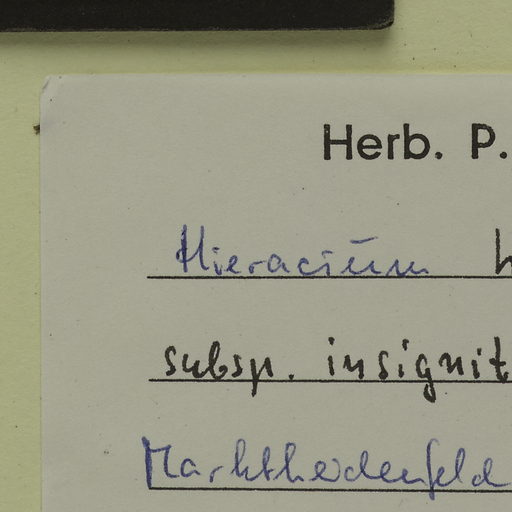 Herb. P.
Hieracium h
subsp. insignit
Marktheidenfeld